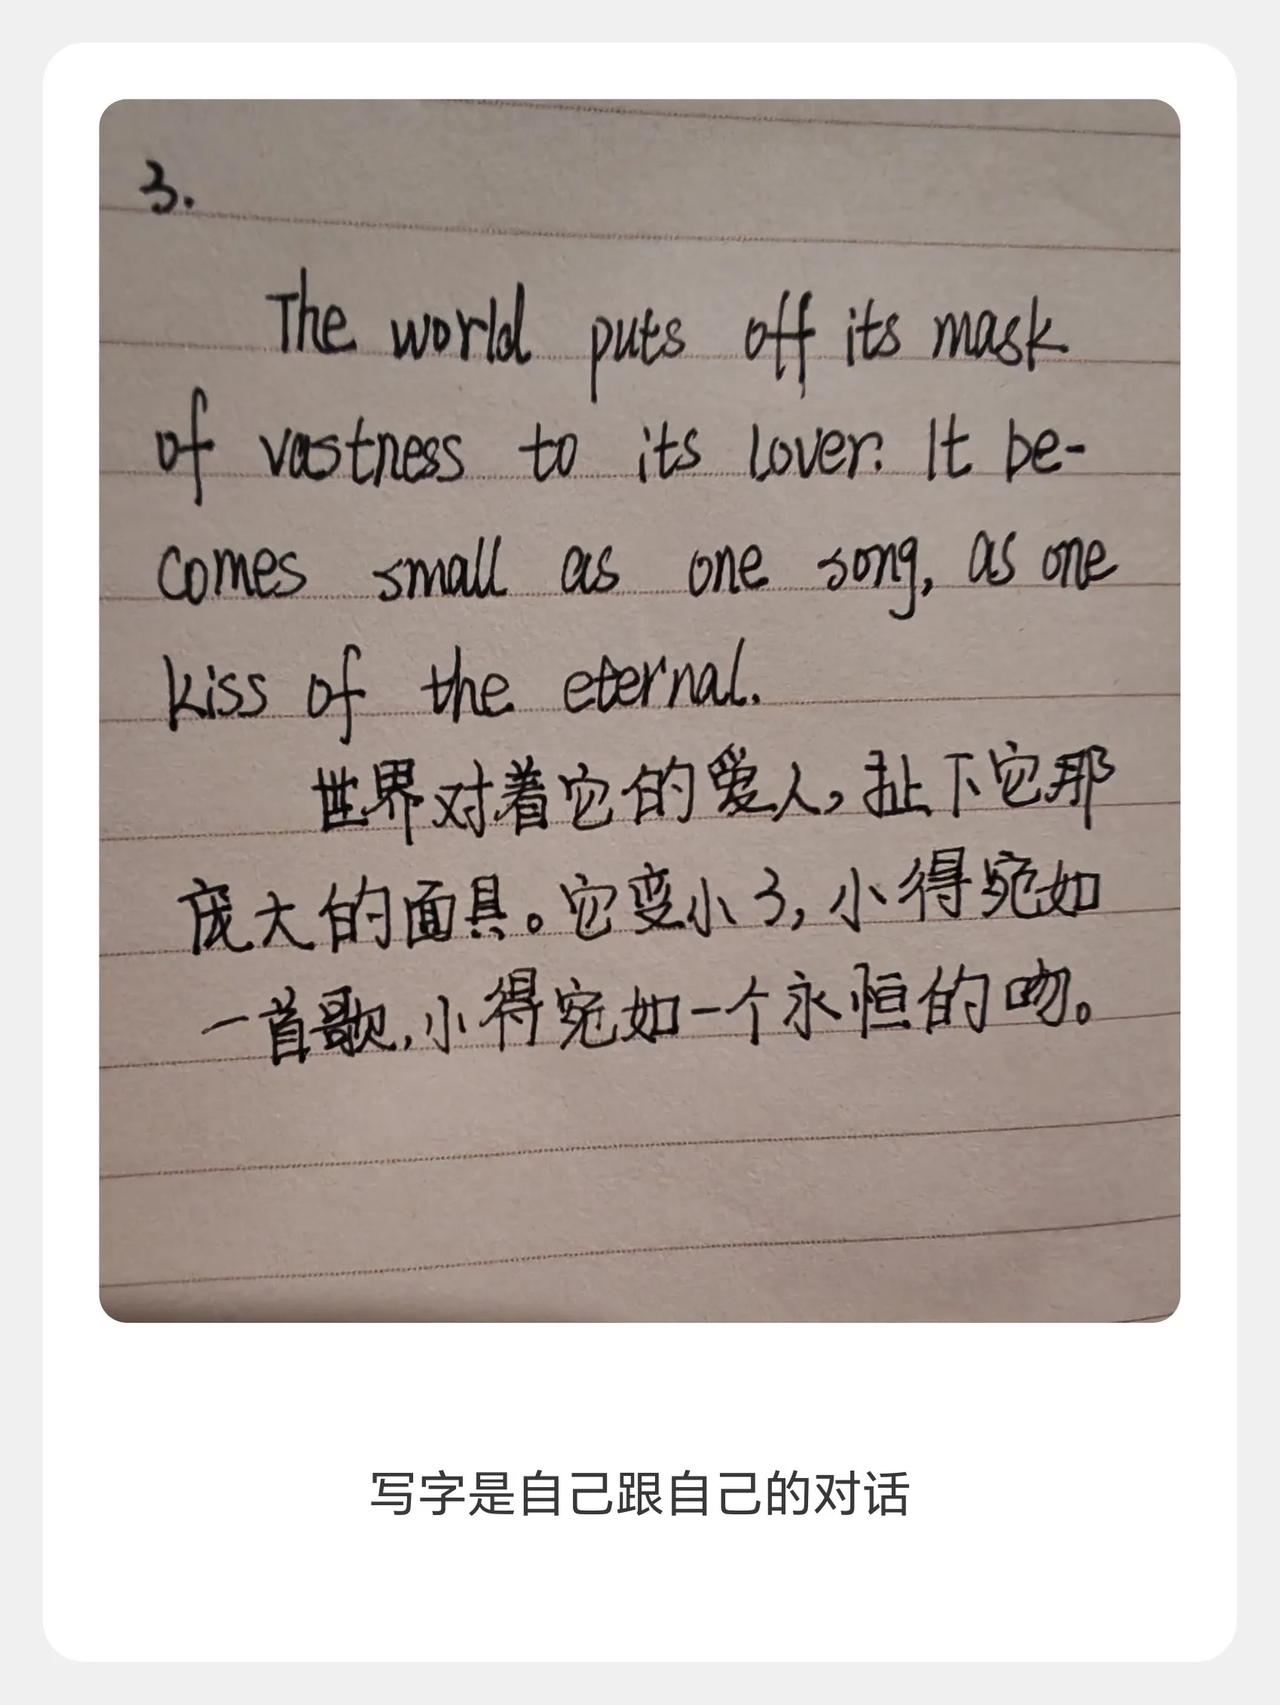 3.
The world puts off its mask
of vastness to its lover. It be-
comes small as one song, as one
kiss of the eternal.
世界对着它的爱人，扯下它那
庞大的面具。它变小了，小得宛如
一首歌，小得宛如一个永恒的吻。
写字是自己跟自己的对话